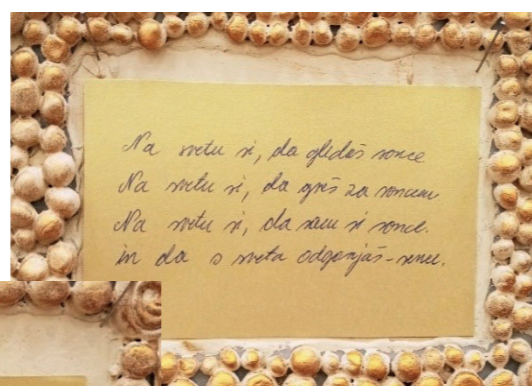 Na svetu si, da gledaš sonce
Na svetu si, da greš za soncem
Na svetu si, da sam si sonce.
in da s sveta odganjaš - sence.